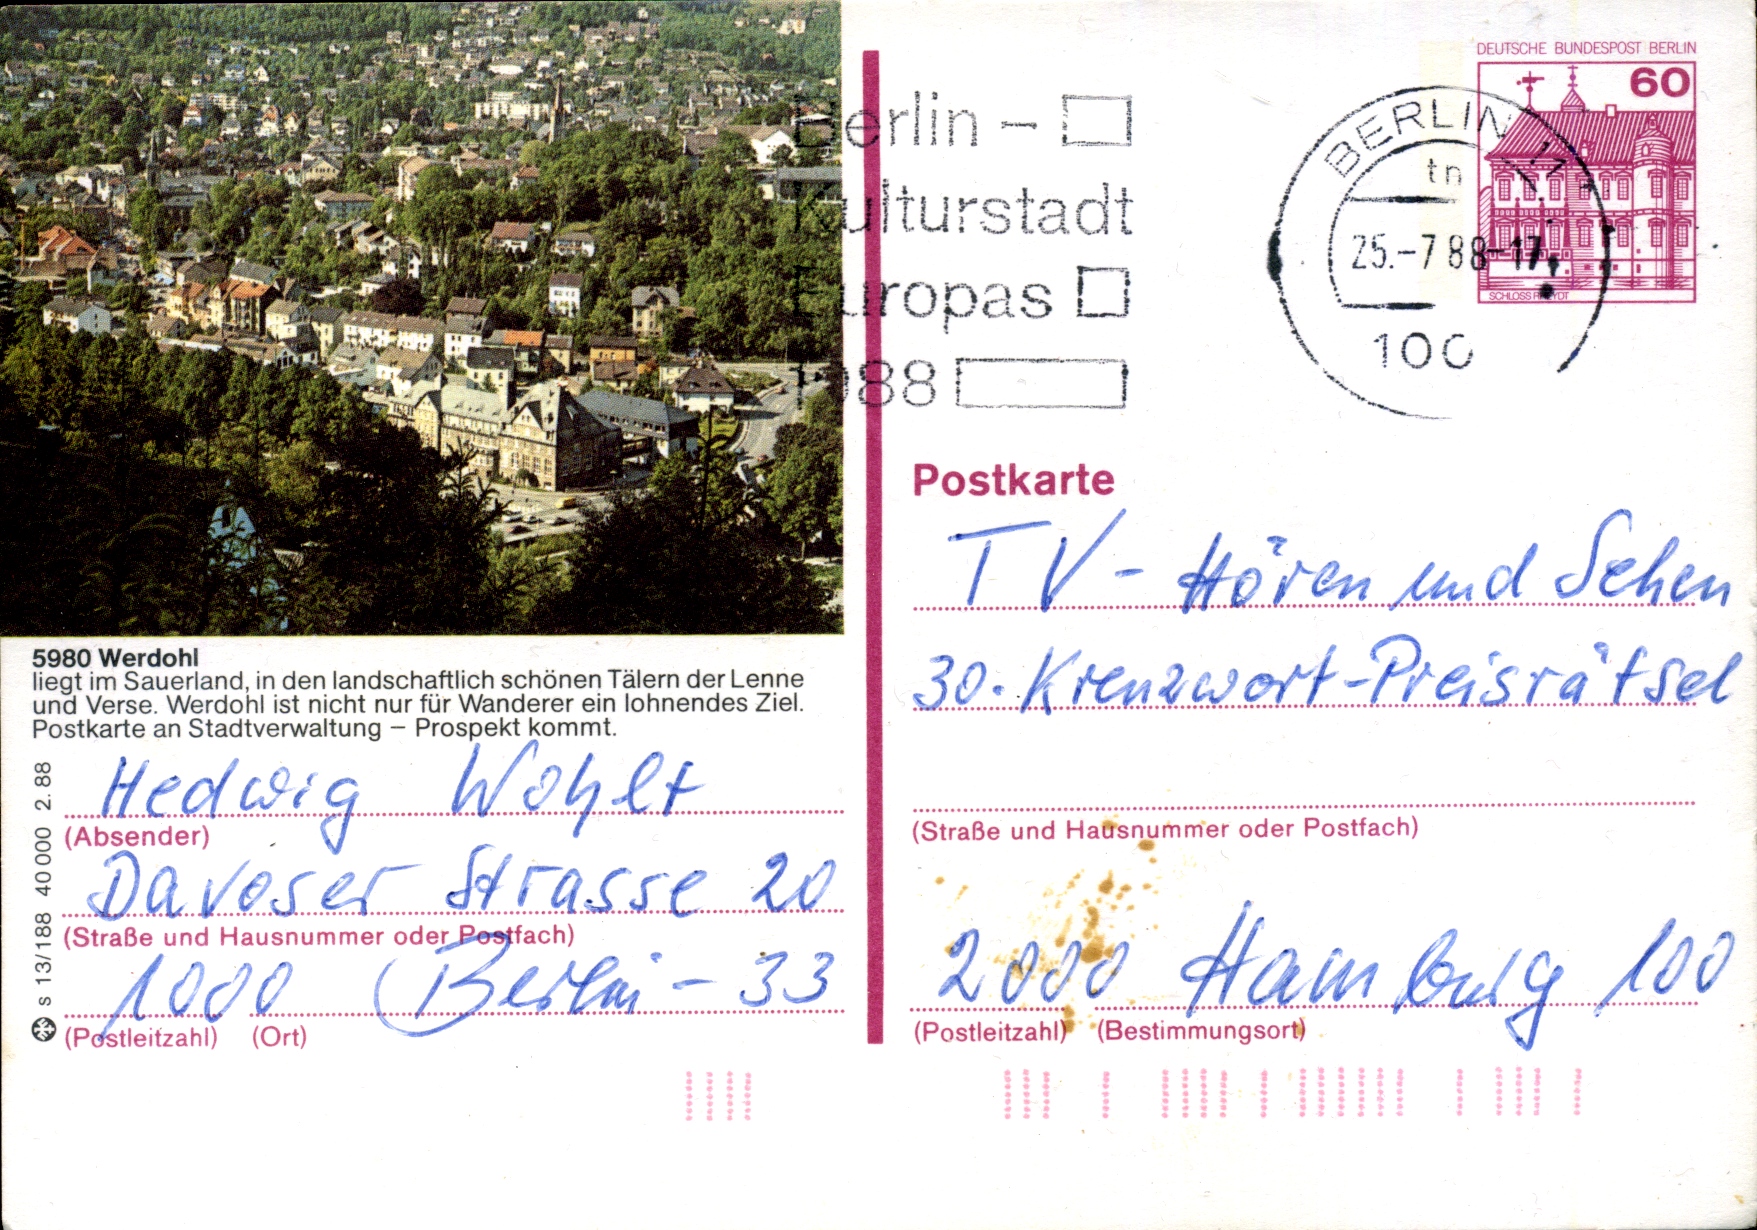 Berlin –
Kulturstadt
Europas
1988
BERLIN 11
tn
25.-7 88-17
100
DEUTSCHE BUNDESPOST BERLIN
60
SCHLOSS RHEYDT
Postkarte
TV - Hören und Sehen
30. Kreuzwort-Preisrätsel
(Straße und Hausnummer oder Postfach)
2000 Hamburg 100
(Postleitzahl) (Bestimmungsort)
5980 Werdohl
liegt im Sauerland, in den landschaftlich schönen Tälern der Lenne
und Verse. Werdohl ist nicht nur für Wanderer ein lohnendes Ziel.
Postkarte an Stadtverwaltung – Prospekt kommt.
Hedwig Wohlt
(Absender)
Davoser Strasse 20
(Straße und Hausnummer oder Postfach)
1000 Berlin - 33
(Postleitzahl) (Ort)
s 13/188 40 000 2.88